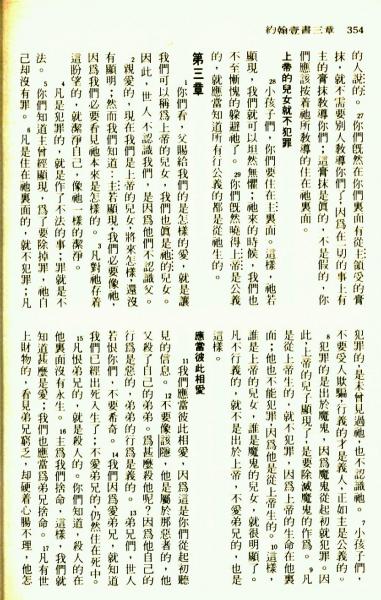 約翰壹書三章　354
的人說的。27你們旣然在你們裏面有從主領受的膏
抹，就不需要別人敎導你們了；因爲在一切的事上有
主的膏抹敎導你們，這膏抹是眞的，不是假的，你
們應該按着祂所敎導的住在祂裏面。
上帝的兒女就不犯罪
28小孩子們，你們要住在主裏面。這樣，祂若
顯現，我們就可以坦然無懼；祂來的時候，我們也
不至慚愧的躱避祂了。29你們旣然曉得上帝是公義
的，就應當知道所有行公義的都是從祂生的。
第三章
1你們看，父賜給我們的是怎樣的愛，就是讓
我們可以稱爲上帝的兒女，我們也眞是祂的兒女。
因此，世人不認識我們，是因爲他們不認識父。
2親愛的，現在我們是上帝的兒女，將來怎樣，還沒
有顯明；然而我們知道：主若顯現，我們必要像祂，
因爲我們必要看見祂本來是怎樣的。3凡對祂存着
這盼望的，就潔淨自己，像祂一樣的潔淨。
4凡是犯罪的，就是作了不法的事；罪就是不
法。5你們知道主曾經顯現，爲了要除掉罪，祂自
己却沒有罪。6凡是住在祂裏面的，就不犯罪；凡
犯罪的，是未曾見過祂，也不認識祂。7小孩子們，
不要受人欺騙，行義的才是義人，正如主是公義的。
8犯罪的是出於魔鬼，因爲魔鬼從起初就犯罪。因
此，上帝的兒子顯現了，是要除滅魔鬼的作爲。9凡
是從上帝生的，就不犯罪，因爲上帝的生命在他裏
面；他也不能犯罪，因爲他是從上帝生的。10這樣，
誰是上帝的兒女，誰是魔鬼的兒女，就很明顯了。
凡不行義的，就不是出於上帝，不愛弟兄的，也是
這樣。
應當彼此相愛
11我們應當彼此相愛，因爲這是你們從起初聽
見的信息。12不要像該隱，他是屬於那惡者的，他
又殺了自己的弟弟。爲甚麼殺他呢？因爲他自己的
行爲是惡的，弟弟的行爲是義的。13弟兄們，世人
若恨你們，不要希奇。14我們因爲愛弟兄，就知道
我們已經出死入生了；不愛弟兄的仍然住在死中。
15凡恨弟兄的，就是殺人的。你們知道，殺人的在
他裏面沒有永生。16主爲我們捨命，這樣，我們就
知道甚麼是愛；我們也應當爲弟兄捨命。17凡有世
上財物的，看見弟兄窮乏，却硬着心腸不理，他怎